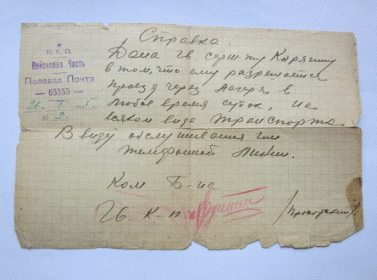 Справка
Н. К. О.
Войсковая Часть
Полевая Почта
65553
Дана гв. серж-ту Карягину
в том, что ему разрешается
проезд через Лагерь в
любое время суток, на
всяком виде транспорта.
В виду обслуживания им
телефонной линии.
Ком Б-на
Гв. к-н
/Прокорский/